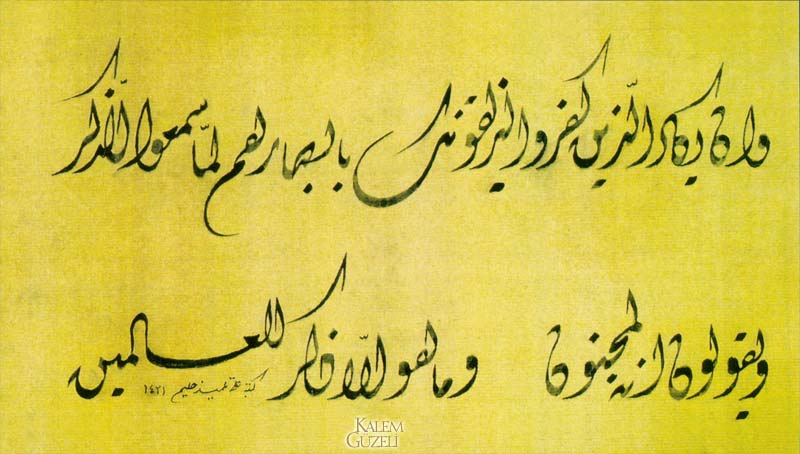 وان يكاد الذين كفروا ليزلقونك بابصارهم لمّا سمعوا الذكر
ويقولون انه لمجنون وما هو الّا ذكر للعالمين
كتبه ١٤٢١
KALEM
GÜZELİ